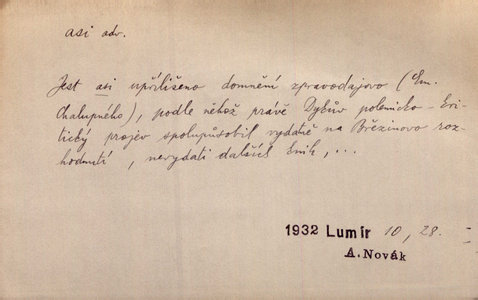 asi adv.
Jest asi upřílišeno domnění zpravodajovo (Em.
Chalupného), podle něhož právě Dykův polemicko-kri-
tický projev spolupůsobil vydatně na Březinovo roz-
hodnutí, nevydati dalších knih, ...
1932 Lumír 10, 28.
A. Novák